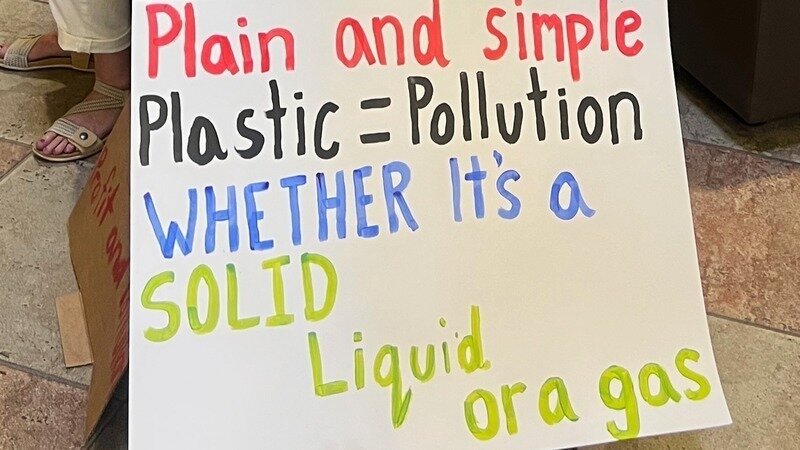 Plain and simple
Plastic = Pollution
WHETHER It's a
SOLID
Liquid
or a gas